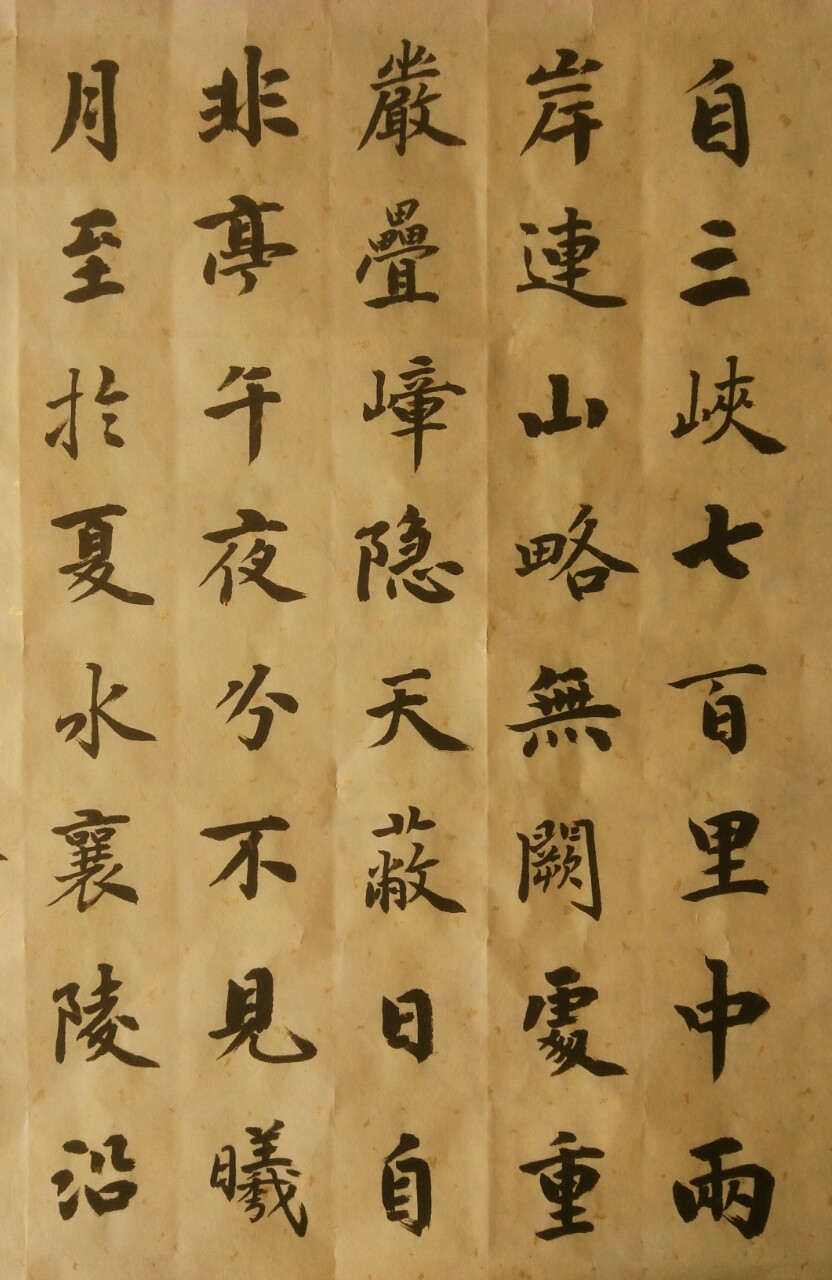 自三峽七百里中兩
岸連山略無闕處重
巖疊嶂隐天蔽日自
非亭午夜分不見曦
月至於夏水襄陵沿